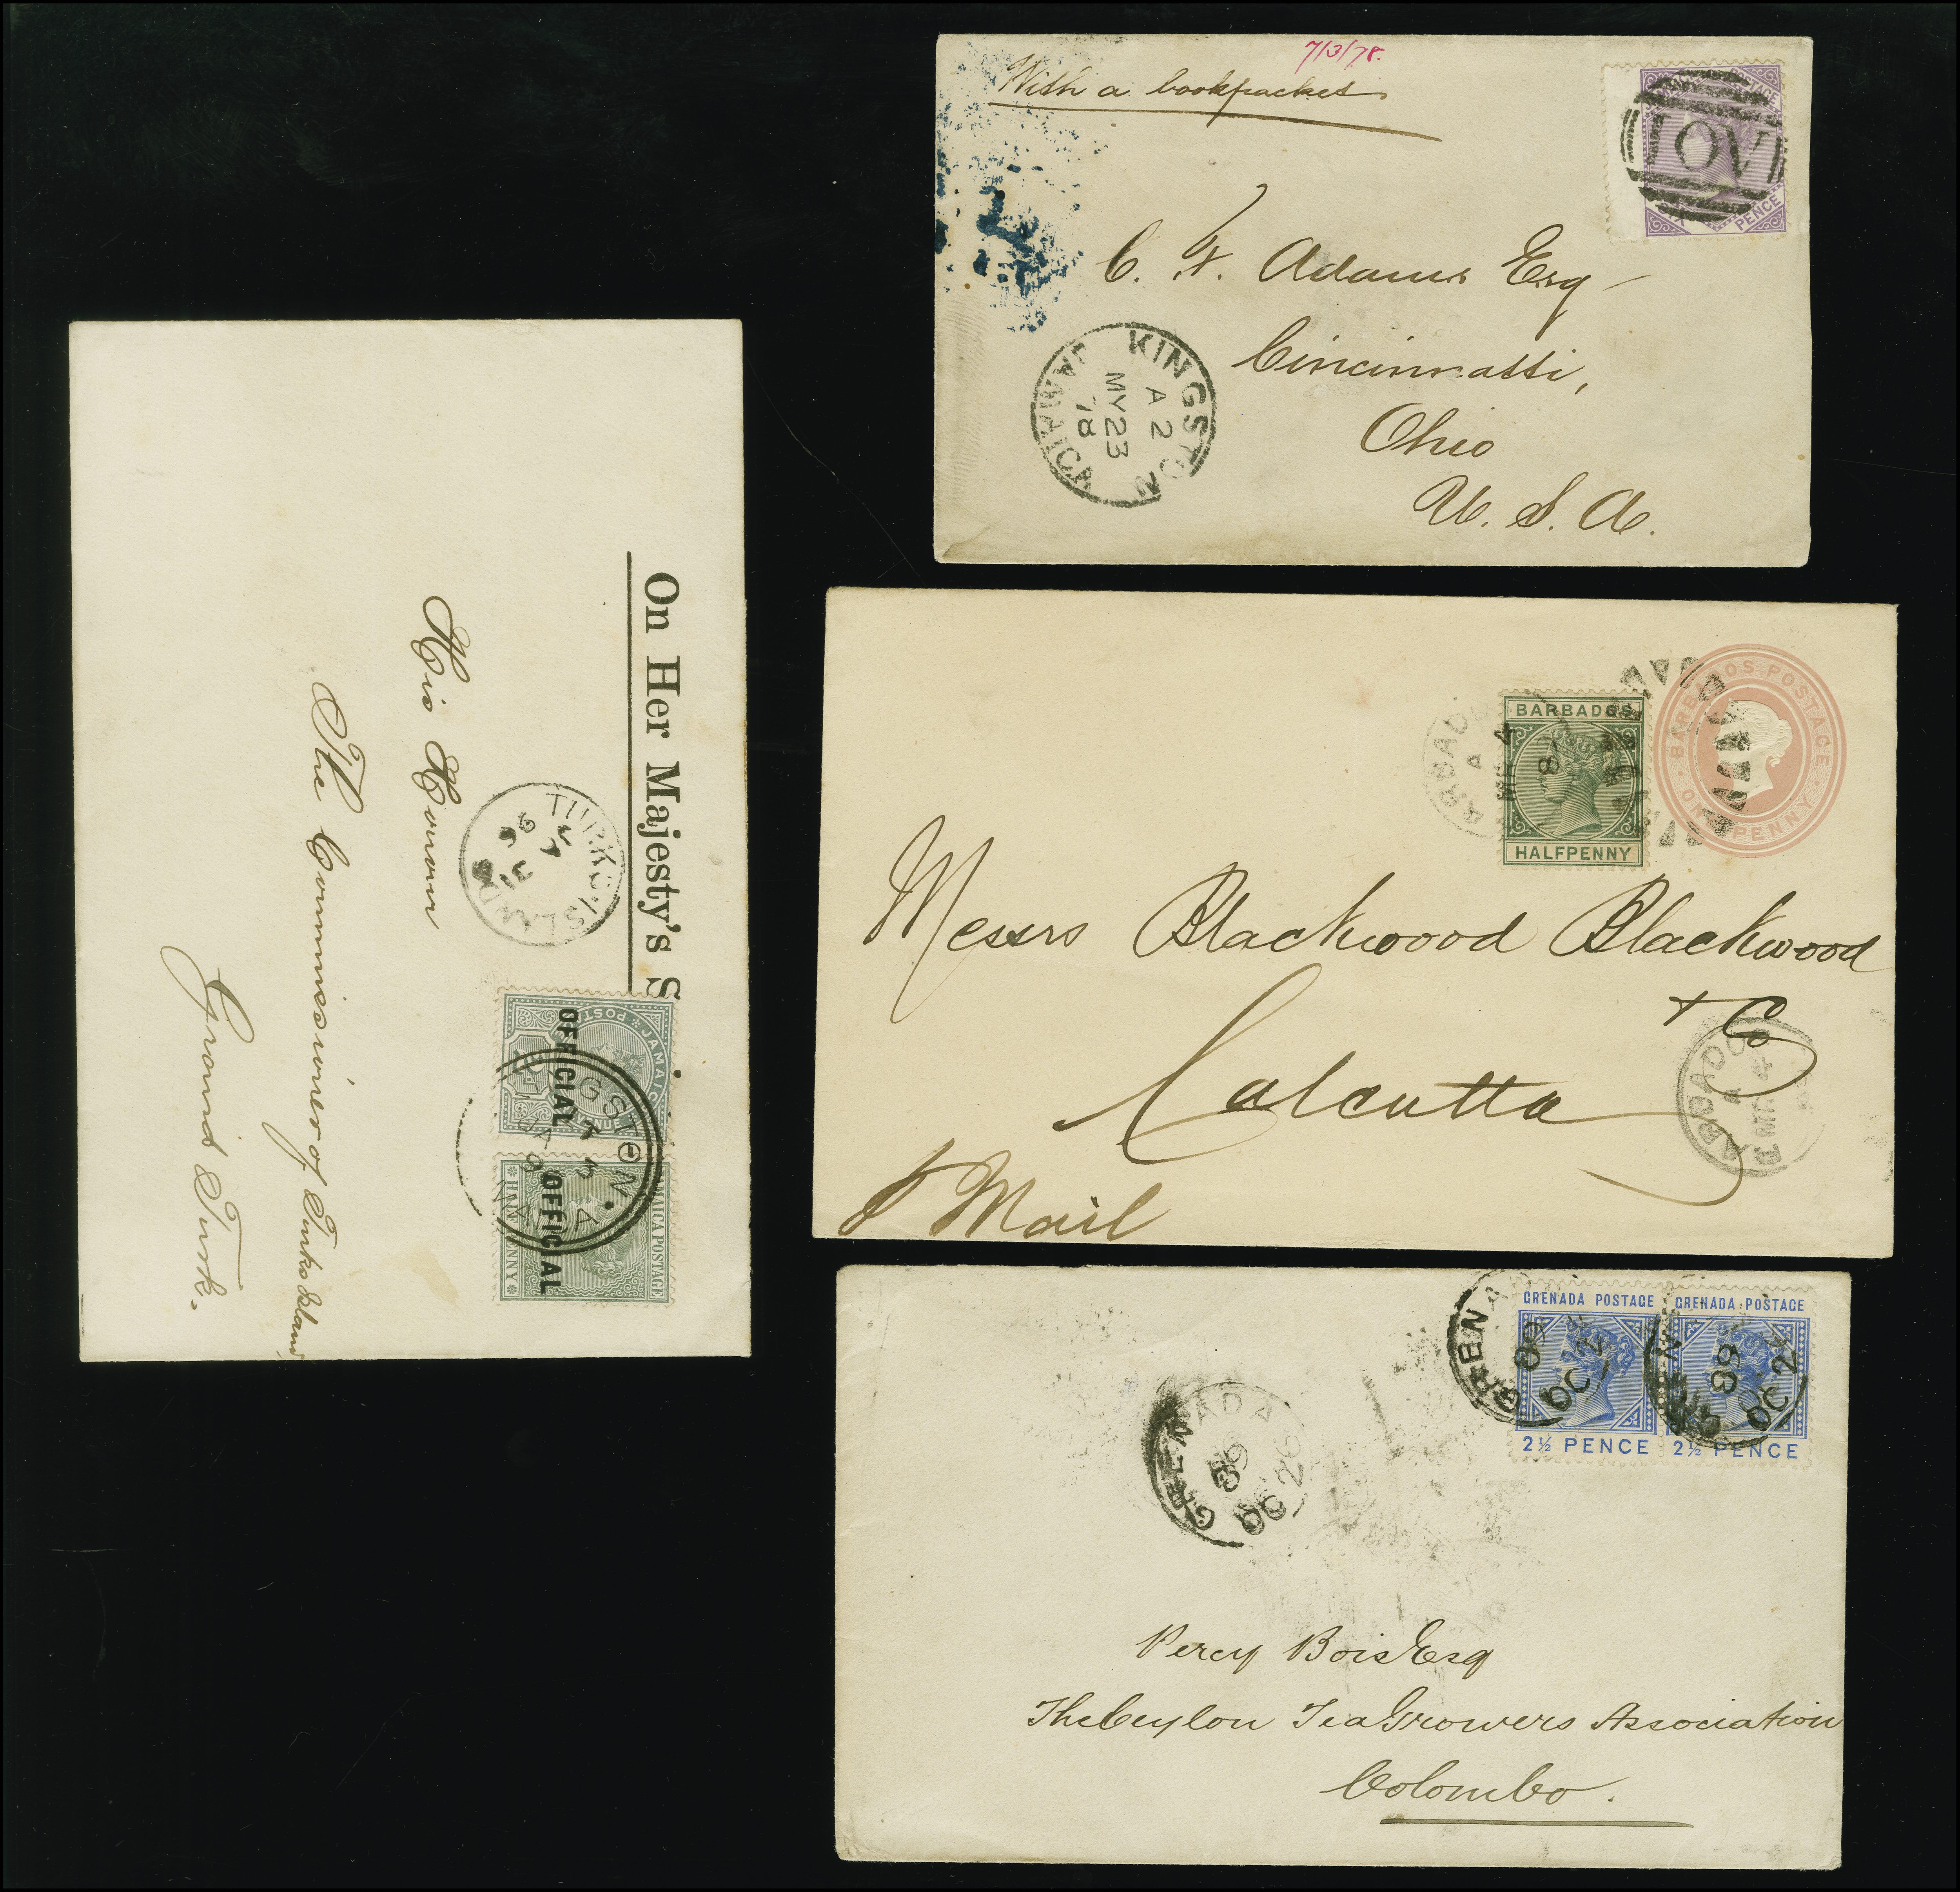 On Her Majesty's S
His Honour
The Commissioner of Turks Island
Grand Turk.
TURKS ISLANDS
JA
96
OFFICIAL
JAMAICA POSTAGE
HALFPENNY
OFFICIAL
KINGSTON
JAMAICA
7/3/78.
With a bookpacket
PENCE
C. F. Adams Esq
Cincinnatti,
Ohio
U. S. A.
KINGSTON
A 2
MY 23
78
JAMAICA
BARBADOS
HALFPENNY
BARBADOS POSTAGE
ONE PENNY
BARBADOS
A
MR 4
Messrs Blackwood Blackwood
& Co
Calcutta
p Mail
BARBADOS
A
MR 4
GRENADA POSTAGE
2½ PENCE
GRENADA POSTAGE
2½ PENCE
GRENADA
89
OC 2
GRENADA
OC 26
Percy Bois Esq
The Ceylon Tea Growers Association
Colombo.